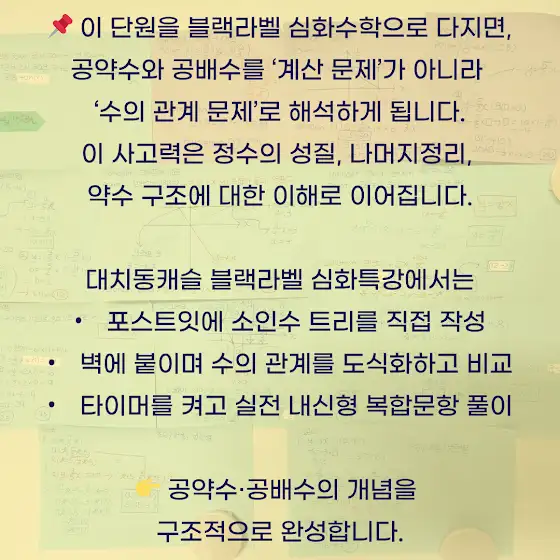 📌 이 단원을 블랙라벨 심화수학으로 다지면,
공약수와 공배수를 ‘계산 문제’가 아니라
‘수의 관계 문제’로 해석하게 됩니다.
이 사고력은 정수의 성질, 나머지정리,
약수 구조에 대한 이해로 이어집니다.
대치동캐슬 블랙라벨 심화특강에서는
• 포스트잇에 소인수 트리를 직접 작성
• 벽에 붙이며 수의 관계를 도식화하고 비교
• 타이머를 켜고 실전 내신형 복합문항 풀이
👉 공약수·공배수의 개념을
구조적으로 완성합니다.